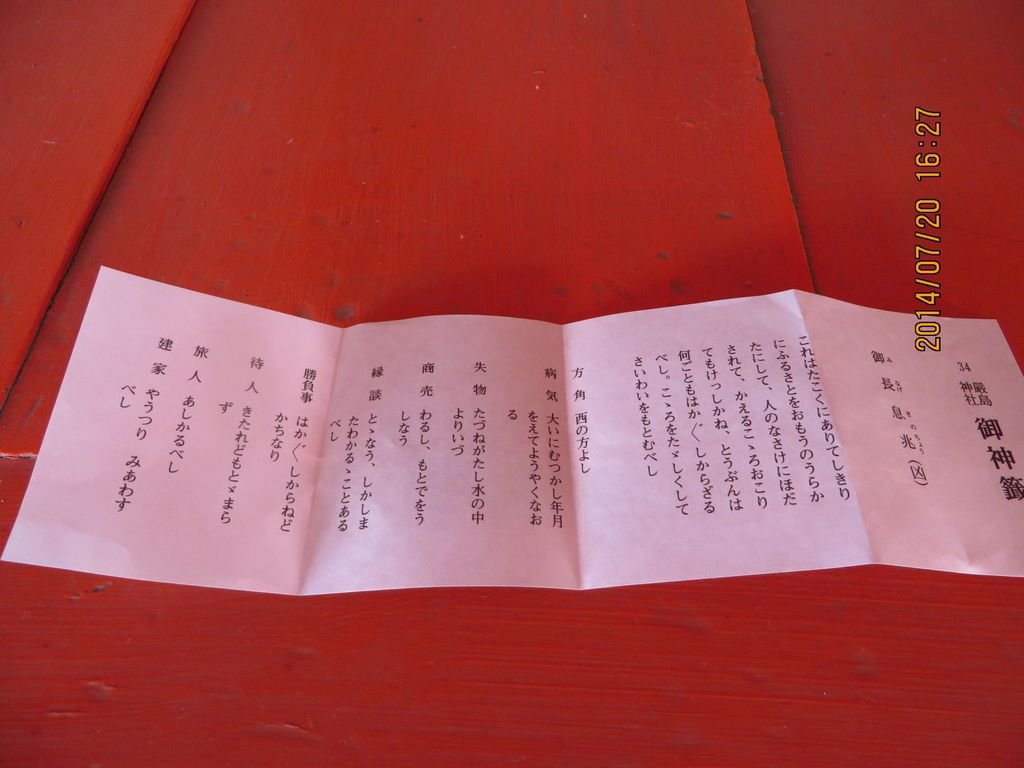 34 厳島神社 御神籤
御長息兆(凶)
み なげ きの ちょう
これはたこくにありてしきり
にふるさとをおもうのうらか
たにして、人のなさけにほだ
されて、かえるこゝろおこり
てもけっしかね、とうぶんは
何ごともはか〴〵しからざる
べし、こゝろをたゞしくして
さいわいをもとむべし
方角 西の方よし
病気 大いにむつかし年月
をえてようやくなお
る
失物 たづねがたし水の中
よりいづ
商売 わるし、もとでをう
しなう
縁談 とゝなう、しかしま
たわかるゝことある
べし
勝負事 はか〴〵しからねど
かちなり
待人 きたれどもとゞまら
ず
旅人 あしかるべし
建家 やうつり みあわす
べし
2014/07/20 16:27